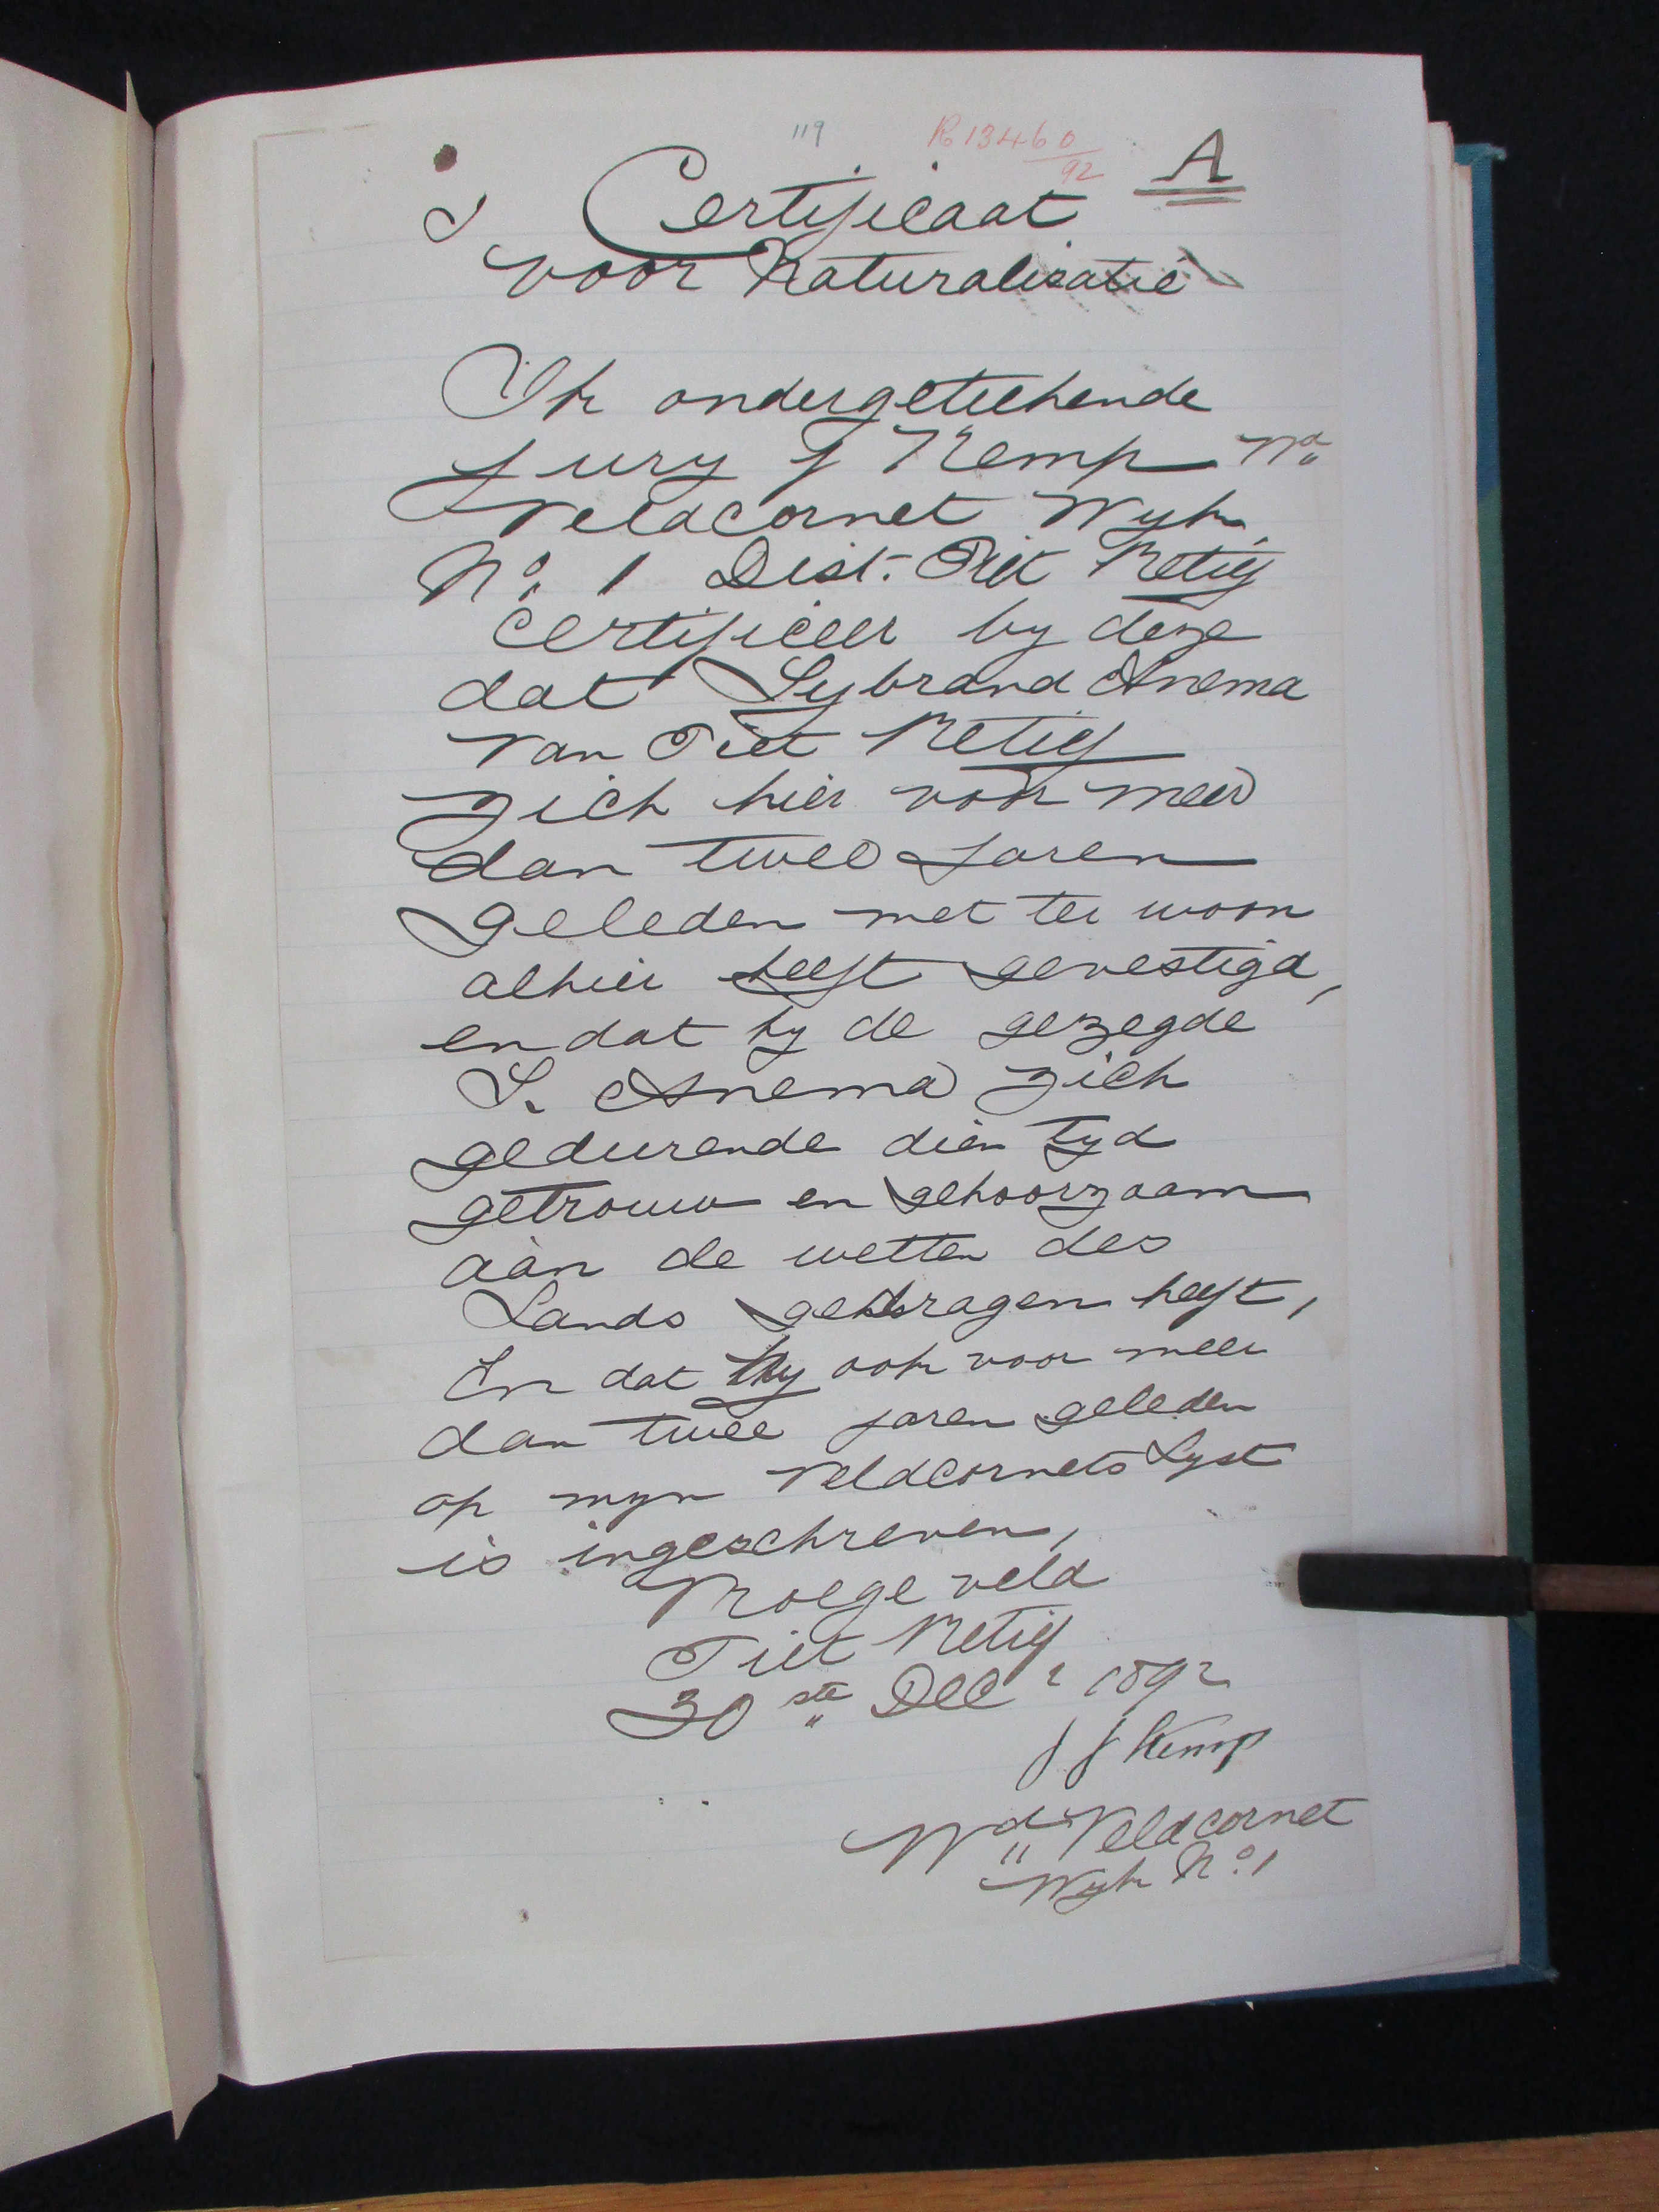 119
R 13460/92
A
Certificaat
voor Naturalisatie
Ik ondergeteekende
Jury J Kemp Wd
Veldcornet Wyk
No. 1 Dist. Piet Retief
Certificeer by deze
dat Sybrand Anema
van Piet Retief
zich hier voor meer
dan twee jaren
geleden met ter woon
alhier heeft gevestigd,
en dat hy de gezegde
S. Anema zich
gedurende dien tyd
getrouw en gehoorzaam
aan de wetten des
Lands gedragen heeft,
En dat hy ook voor meer
dan twee jaren geleden
op myn Veldcornets Lyst
is ingeschreven,
Vroegeveld
Piet Retief
30ste Decr 1892
J J Kemp
Wd Veldcornet
Wyk No. 1